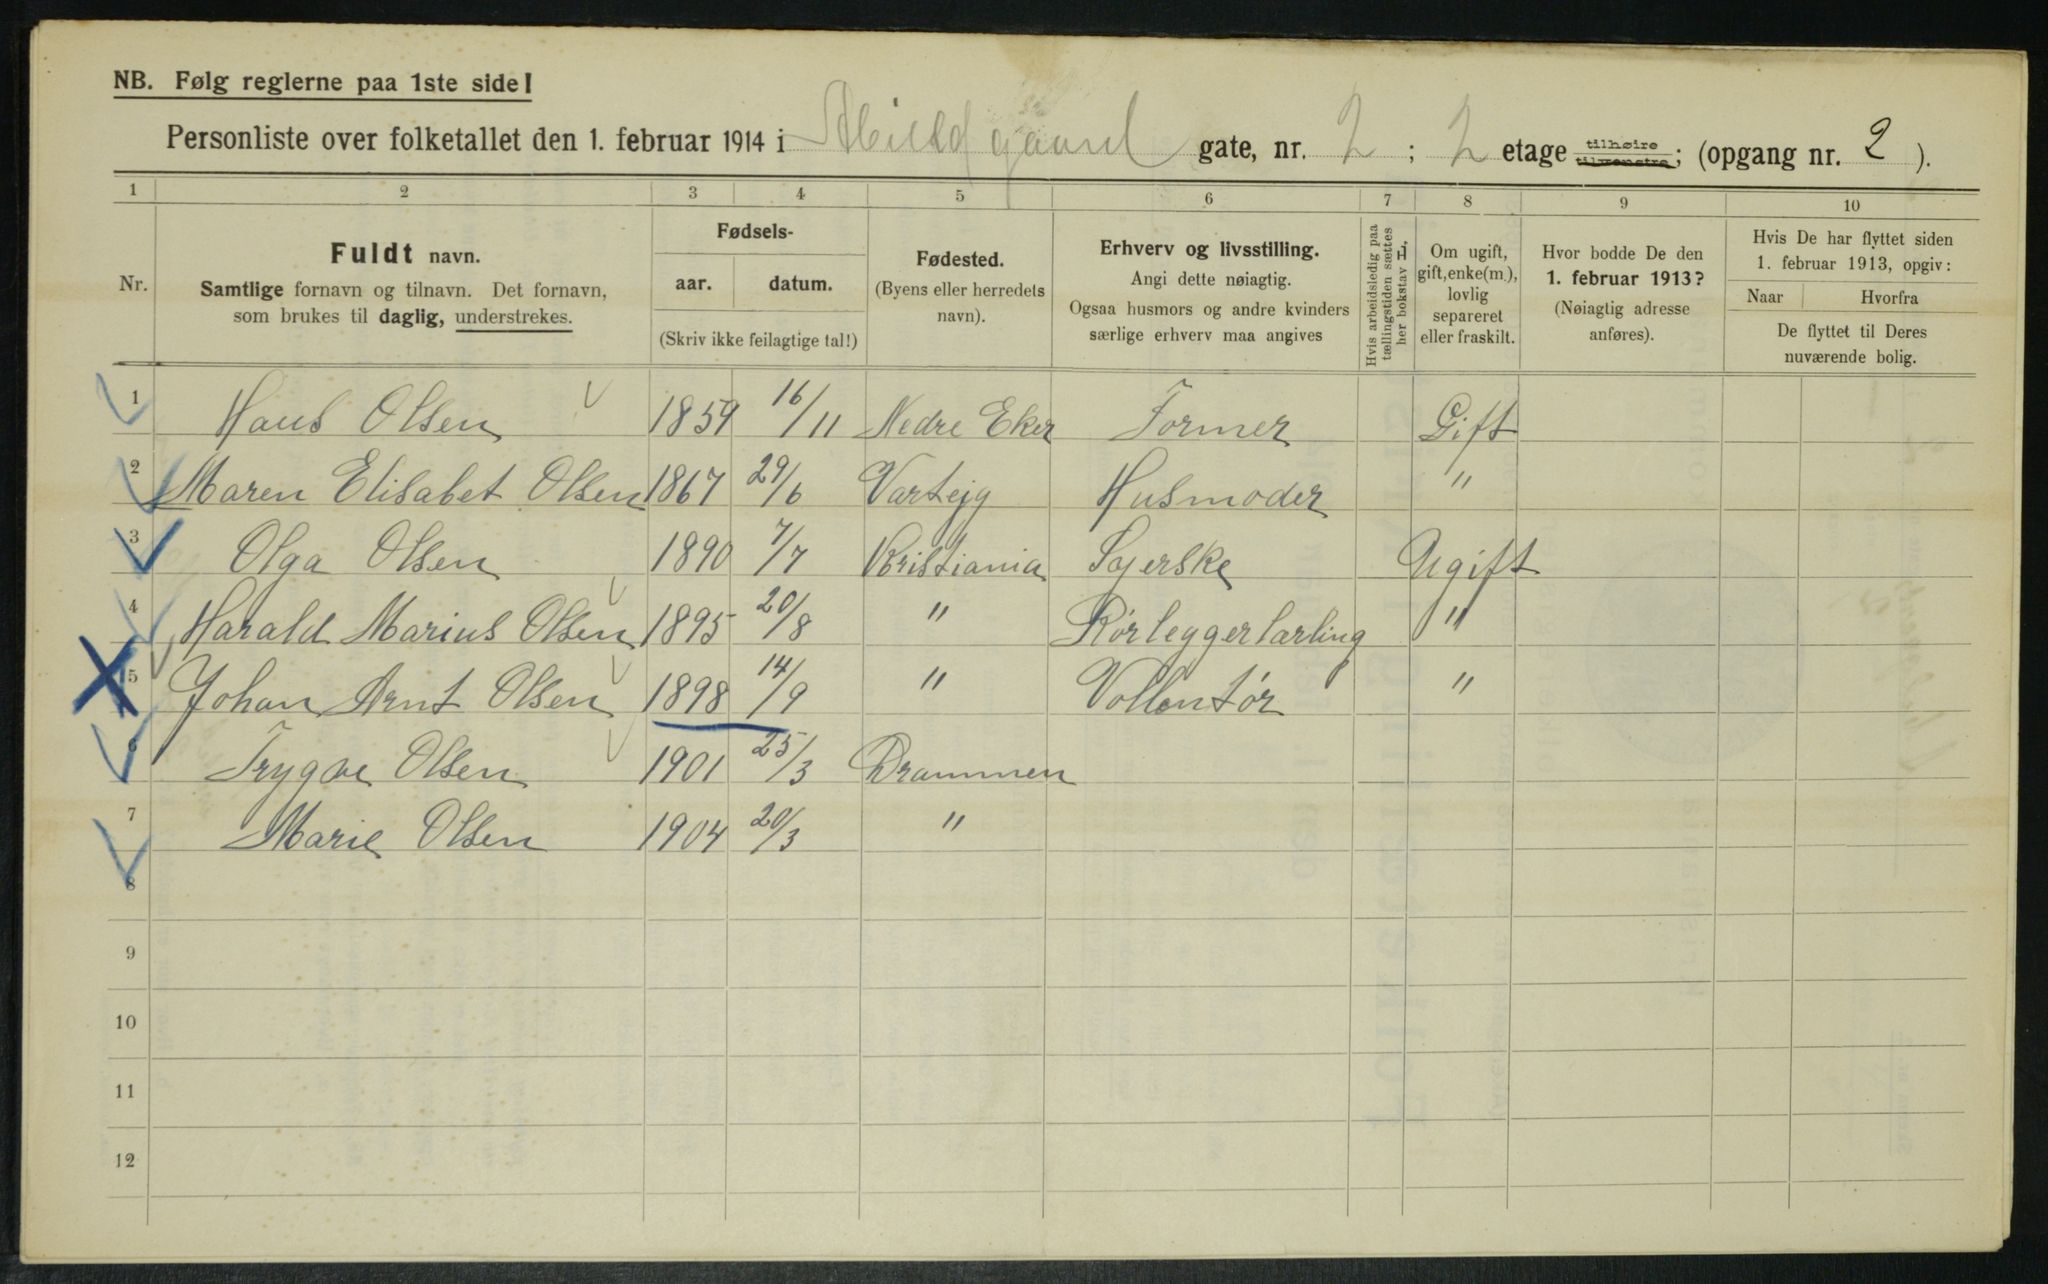 NB. Følg reglerne paa 1ste side!
Personliste over folketallet den 1. februar 1914 i Abildgaard gate, nr. 2 ; 2 etage tilhøire tilvenstre; (opgang nr. 2 ).
1 2 3 4 5 6 7 8 9 10
Nr.
Fuldt navn.
Samtlige fornavn og tilnavn. Det fornavn,
som brukes til daglig, understrekes.
Fødsels-
aar. datum.
(Skriv ikke feilagtige tal!)
Fødested.
(Byens eller herredets
navn).
Erhverv og livsstilling.
Angi dette nøiagtig.
Ogsaa husmors og andre kvinders
særlige erhverv maa angives
Hvis arbeidsledig paa
tællingstiden sættes
her bokstav L,
Om ugift,
gift, enke(m.),
lovlig
separeret
eller fraskilt.
Hvor bodde De den
1. februar 1913?
(Nøiagtig adresse
anføres).
Hvis De har flyttet siden
1. februar 1913, opgiv:
Naar Hvorfra
De flyttet til Deres
nuværende bolig.
1 Hans Olsen 1859 16/11 Nedre Eker Former Gift
2 Maren Elisabet Olsen 1867 29/6 Varteig Husmoder "
3 Olga Olsen 1890 7/7 Kristiania Syerske Ugift
4 Harald Marius Olsen 1895 20/8 " Rörleggerlærling "
5 Johan Arnt Olsen 1898 14/9 " Vollontør "
6 Trygve Olsen 1901 25/3 Drammen
7 Marie Olsen 1904 20/3 "
8
9
10
11
12